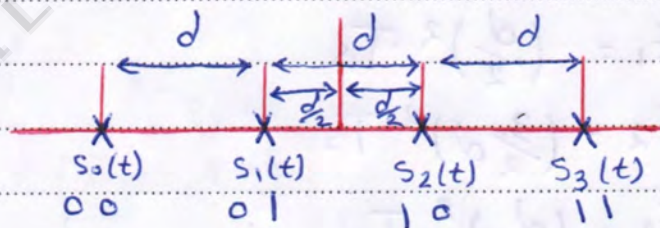 d d d
d/2 d/2
S₀(t) S₁(t) S₂(t) S₃(t)
00 01 10 11